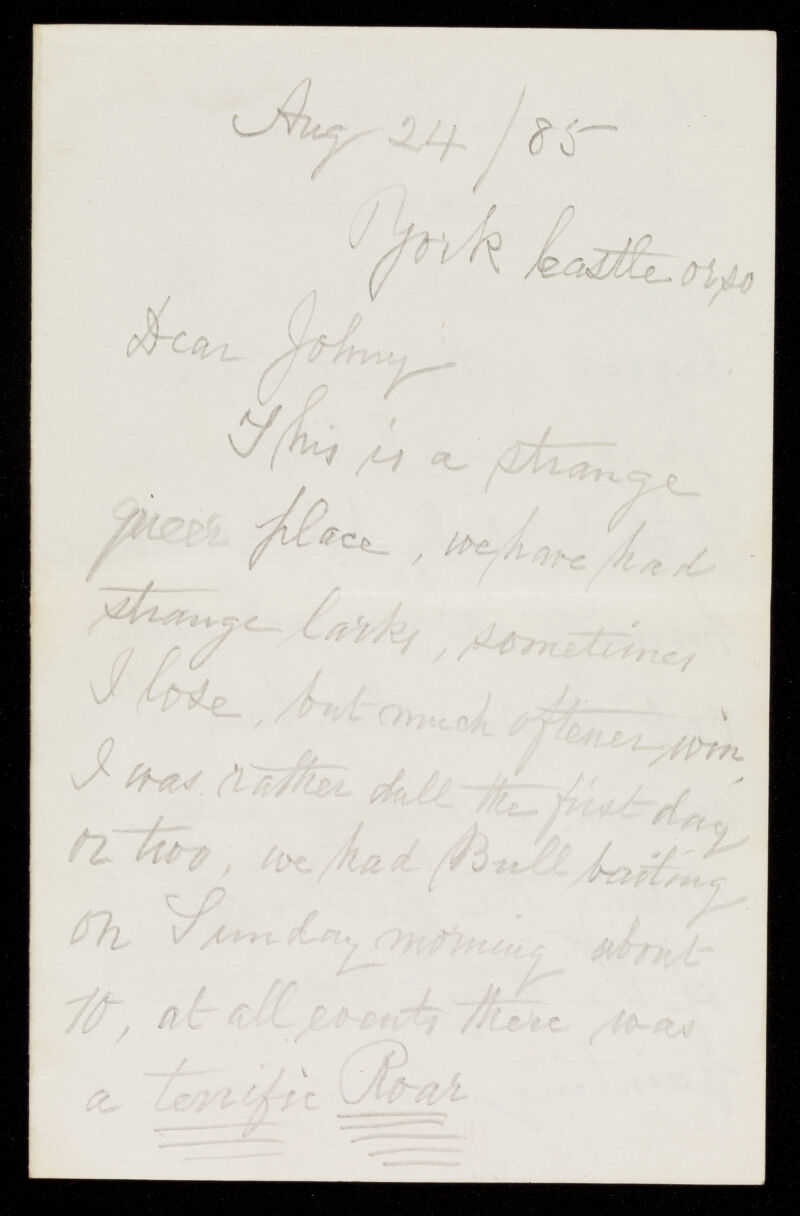 Aug 24/85
York Castle or so
Dear Johny
This is a strange
queer place, we have had
strange larks, sometimes
I lose, but much oftener win,
I was rather dull the first day
or two, we had Bull baiting
on Sunday morning about
10, at all events there was
a terrific Roar